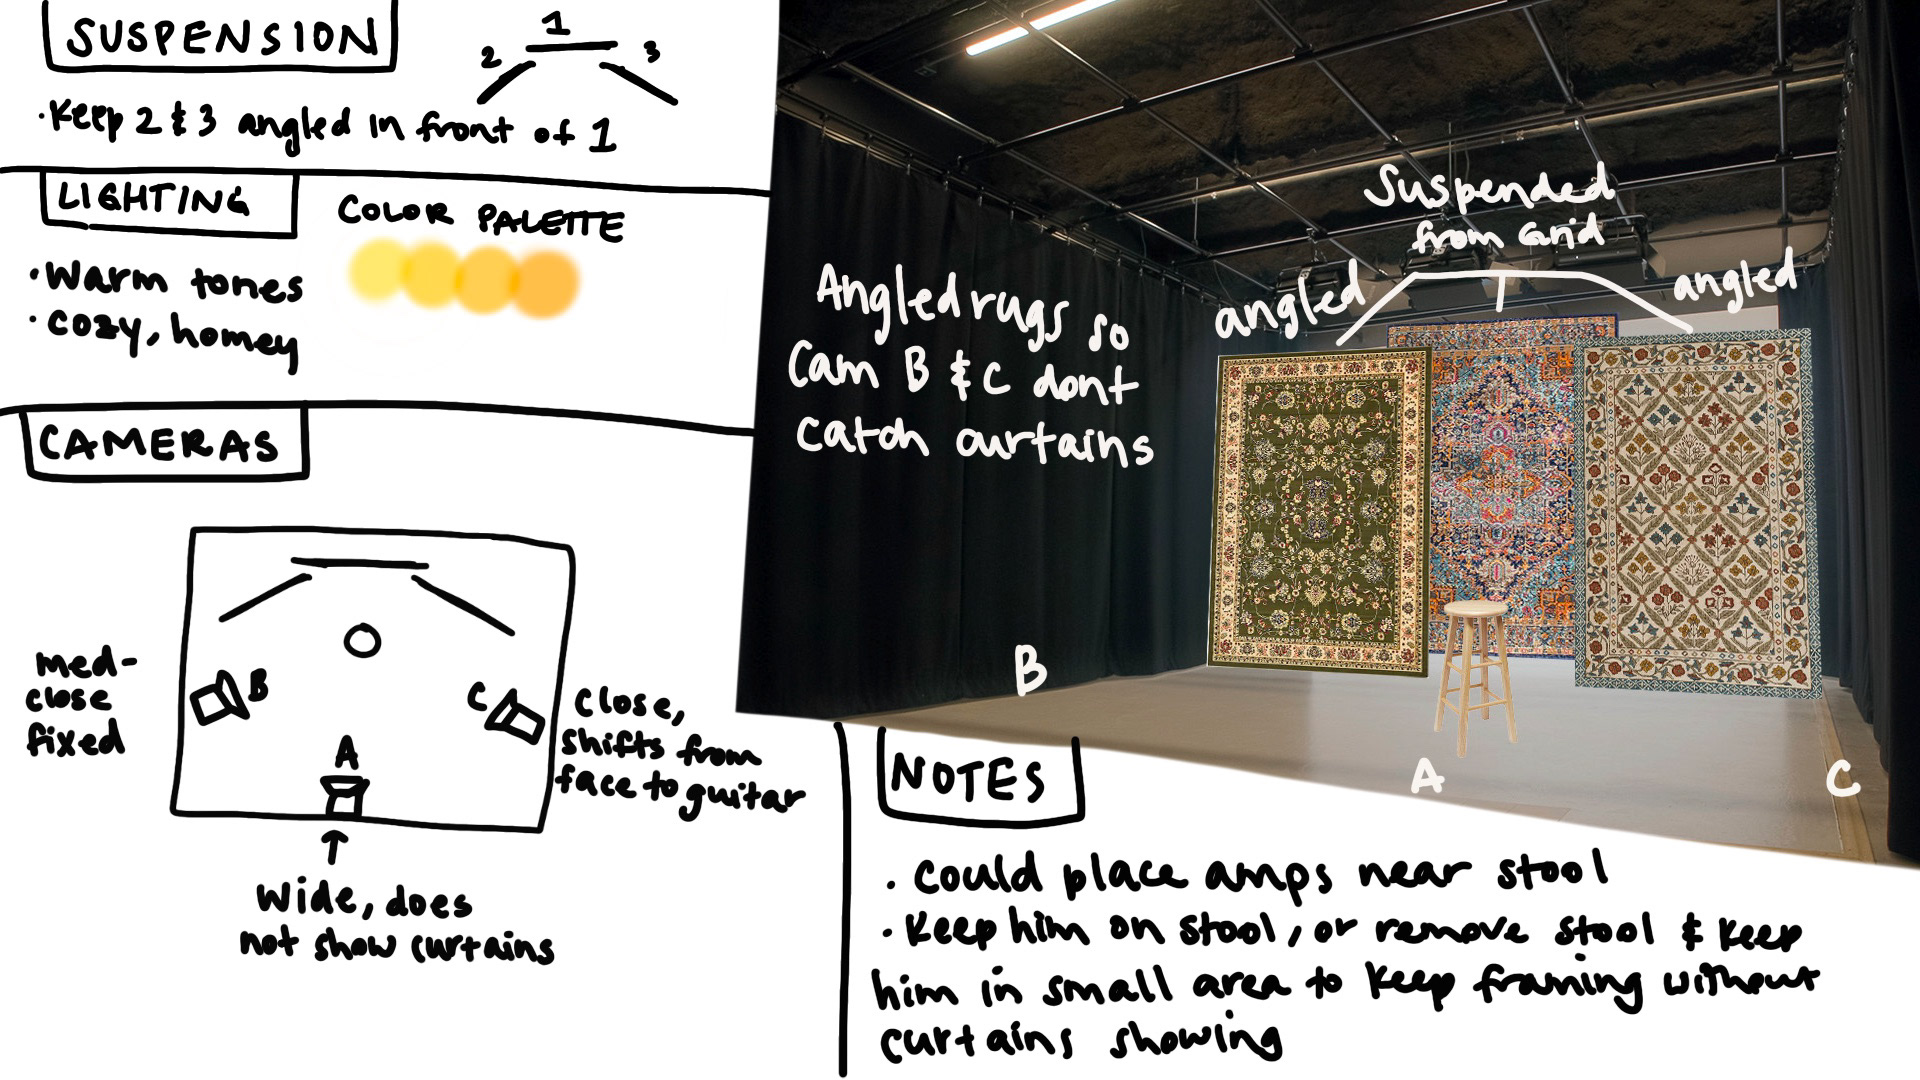 SUSPENSION
1
2
3
• Keep 2 & 3 angled in front of 1
LIGHTING
COLOR PALETTE
• Warm tones
• cozy, homey
CAMERAS
med-
close
fixed
B
C
A
Close,
shifts from
face to guitar
Wide, does
not show curtains
Suspended
from Grid
angled
angled
Angled rugs so
Cam B & C dont
catch curtains
B
A
C
NOTES
• could place amps near stool
• Keep him on stool, or remove stool & keep
him in small area to keep framing without
curtains showing